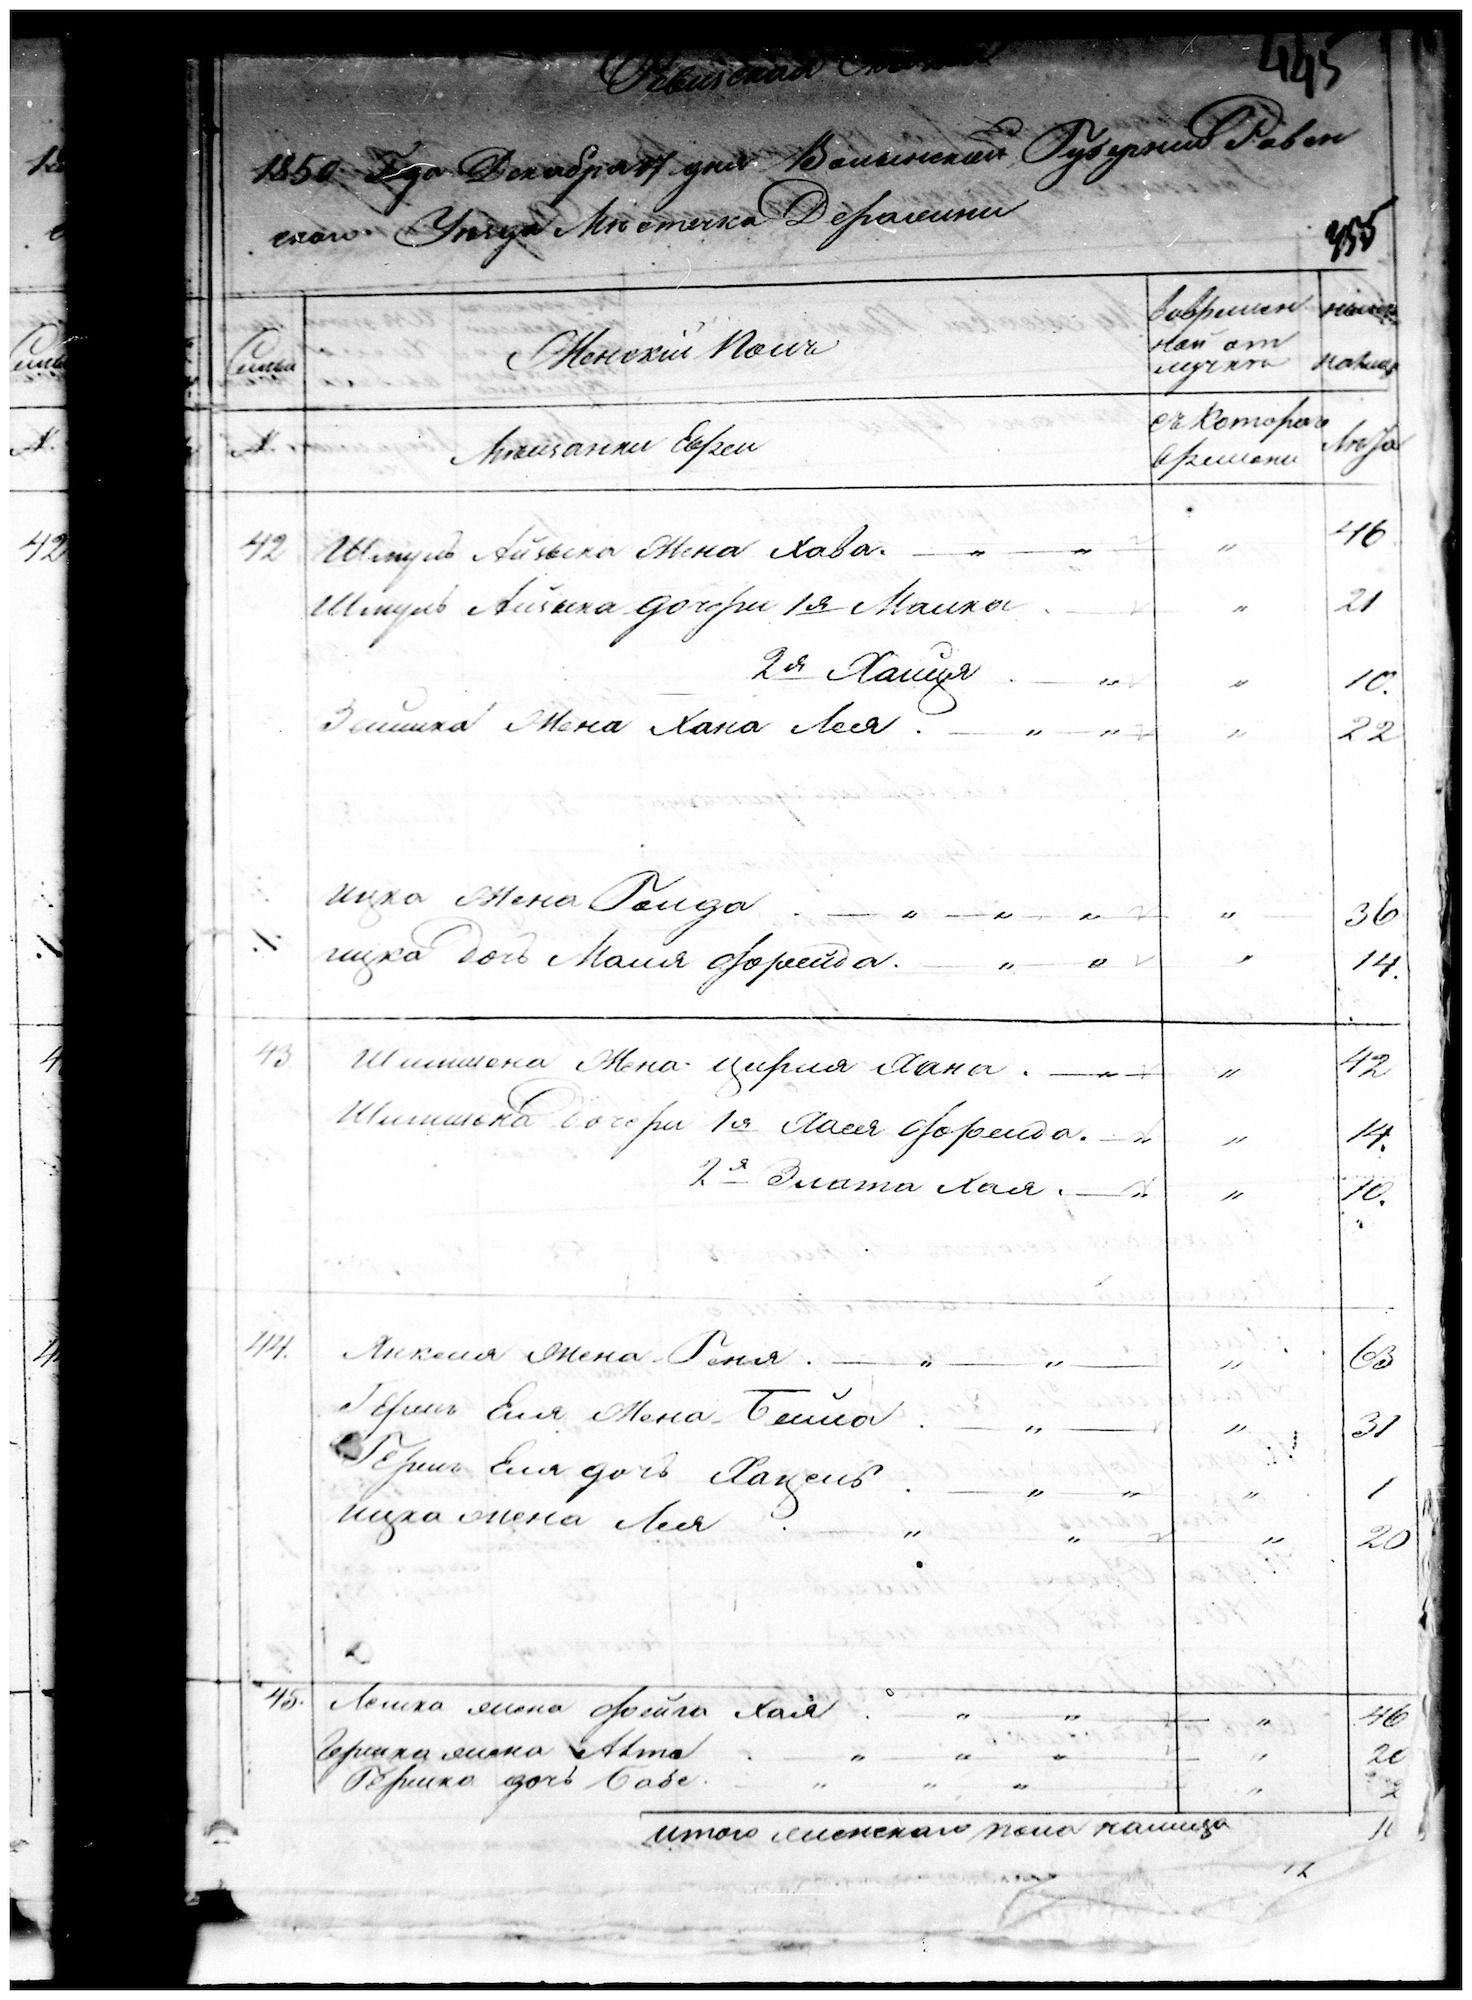 Ревизская Сказка
445
1850 Года Декабря дня Волынской Губернии Ровен
ского Уезда Местечка Деражни
455
Семьи
Женскій Полъ
Вовремен
ной от
лучкъ
ныне
налицо
№.
Мещанки Евреи
съ Котораго
времени
Лета
42
42 Шмуль Айзыка Жена Хава. — „ — „ „ 46
Шмуль Айзыка дочери 1я Малка . — „ 21
2я Хайця . — „ „ 10.
Зельмика Жена Хана Лея . — „ — „ „ 22
Ицка Жена Голда . — „ — „ — „ „ 36
Ицка дочь Маля Фрейда. — „ — „ „ 14.
43 Шимшона Жена Цирля Хана . — „ „ 42
Шимшона Дочери 1я Хася Фрейда. — „ „ 14.
2я Злата Хая . — „ „ 10.
44. Янкеля Жена Геня . — „ — „ — „ 63
Гершъ Еля Жена Бейла . — „ — „ 31
Гершъ Еля дочь Хацель . — „ — „ „ 1
Ицка жена Лея . „ „ „ 20
45. Лейка жена Фейга Хая . „ „ „ 46
Гершка жена . — „ „ „ „ 20
Гершка дочь Бабе. — „ „ „ „ 2
Итого женскаго пола налицо